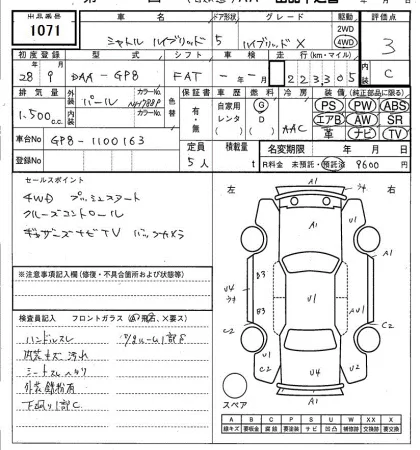 出品番号 車名 ドア形状 グレード 駆動 評価点
1071 シャトル ハイブリッド 5 ハイブリッド X 2WD 4WD 3
初度登録 型式 シフト 車検 走行(km・マイル) 内装
28 9 DAA-GP8 FAT 年 月 223305 C
排気量 外装 カラーNo. 色替 車歴 燃料 冷房 装備(純正部品に限る)
1.500 c.c. パール NH788P 有・無 自家用 レンタ G D AAC PS PW ABS
内装 カラーNo. エアB AW SR
革 ナビ TV
車台No GP8-1100163 定員 積載量 名変期限 年 月 日
登録No 5人 t R料金 未預託・預託済 9600 円
セールスポイント
4WD プッシュスタート
クルーズコントロール
ギャザーズナビTV バックカメラ
※注意事項記入欄(修復・不具合箇所および状態等)
検査員記入 フロントガラス
ハンドルスレ
内装キズ 汚れ
シートスレ ヘタリ
外装線傷有
下廻り1部C
左 右
A1 A1 U4 B3 B3 C2 U1 A1 AU1 C2 U1 C2 U4 A1
スペア
A B C P S U W X XX
線キズ 要板金 腐蝕 要塗装 サビ 凹凸 補修跡 交換跡 要交換